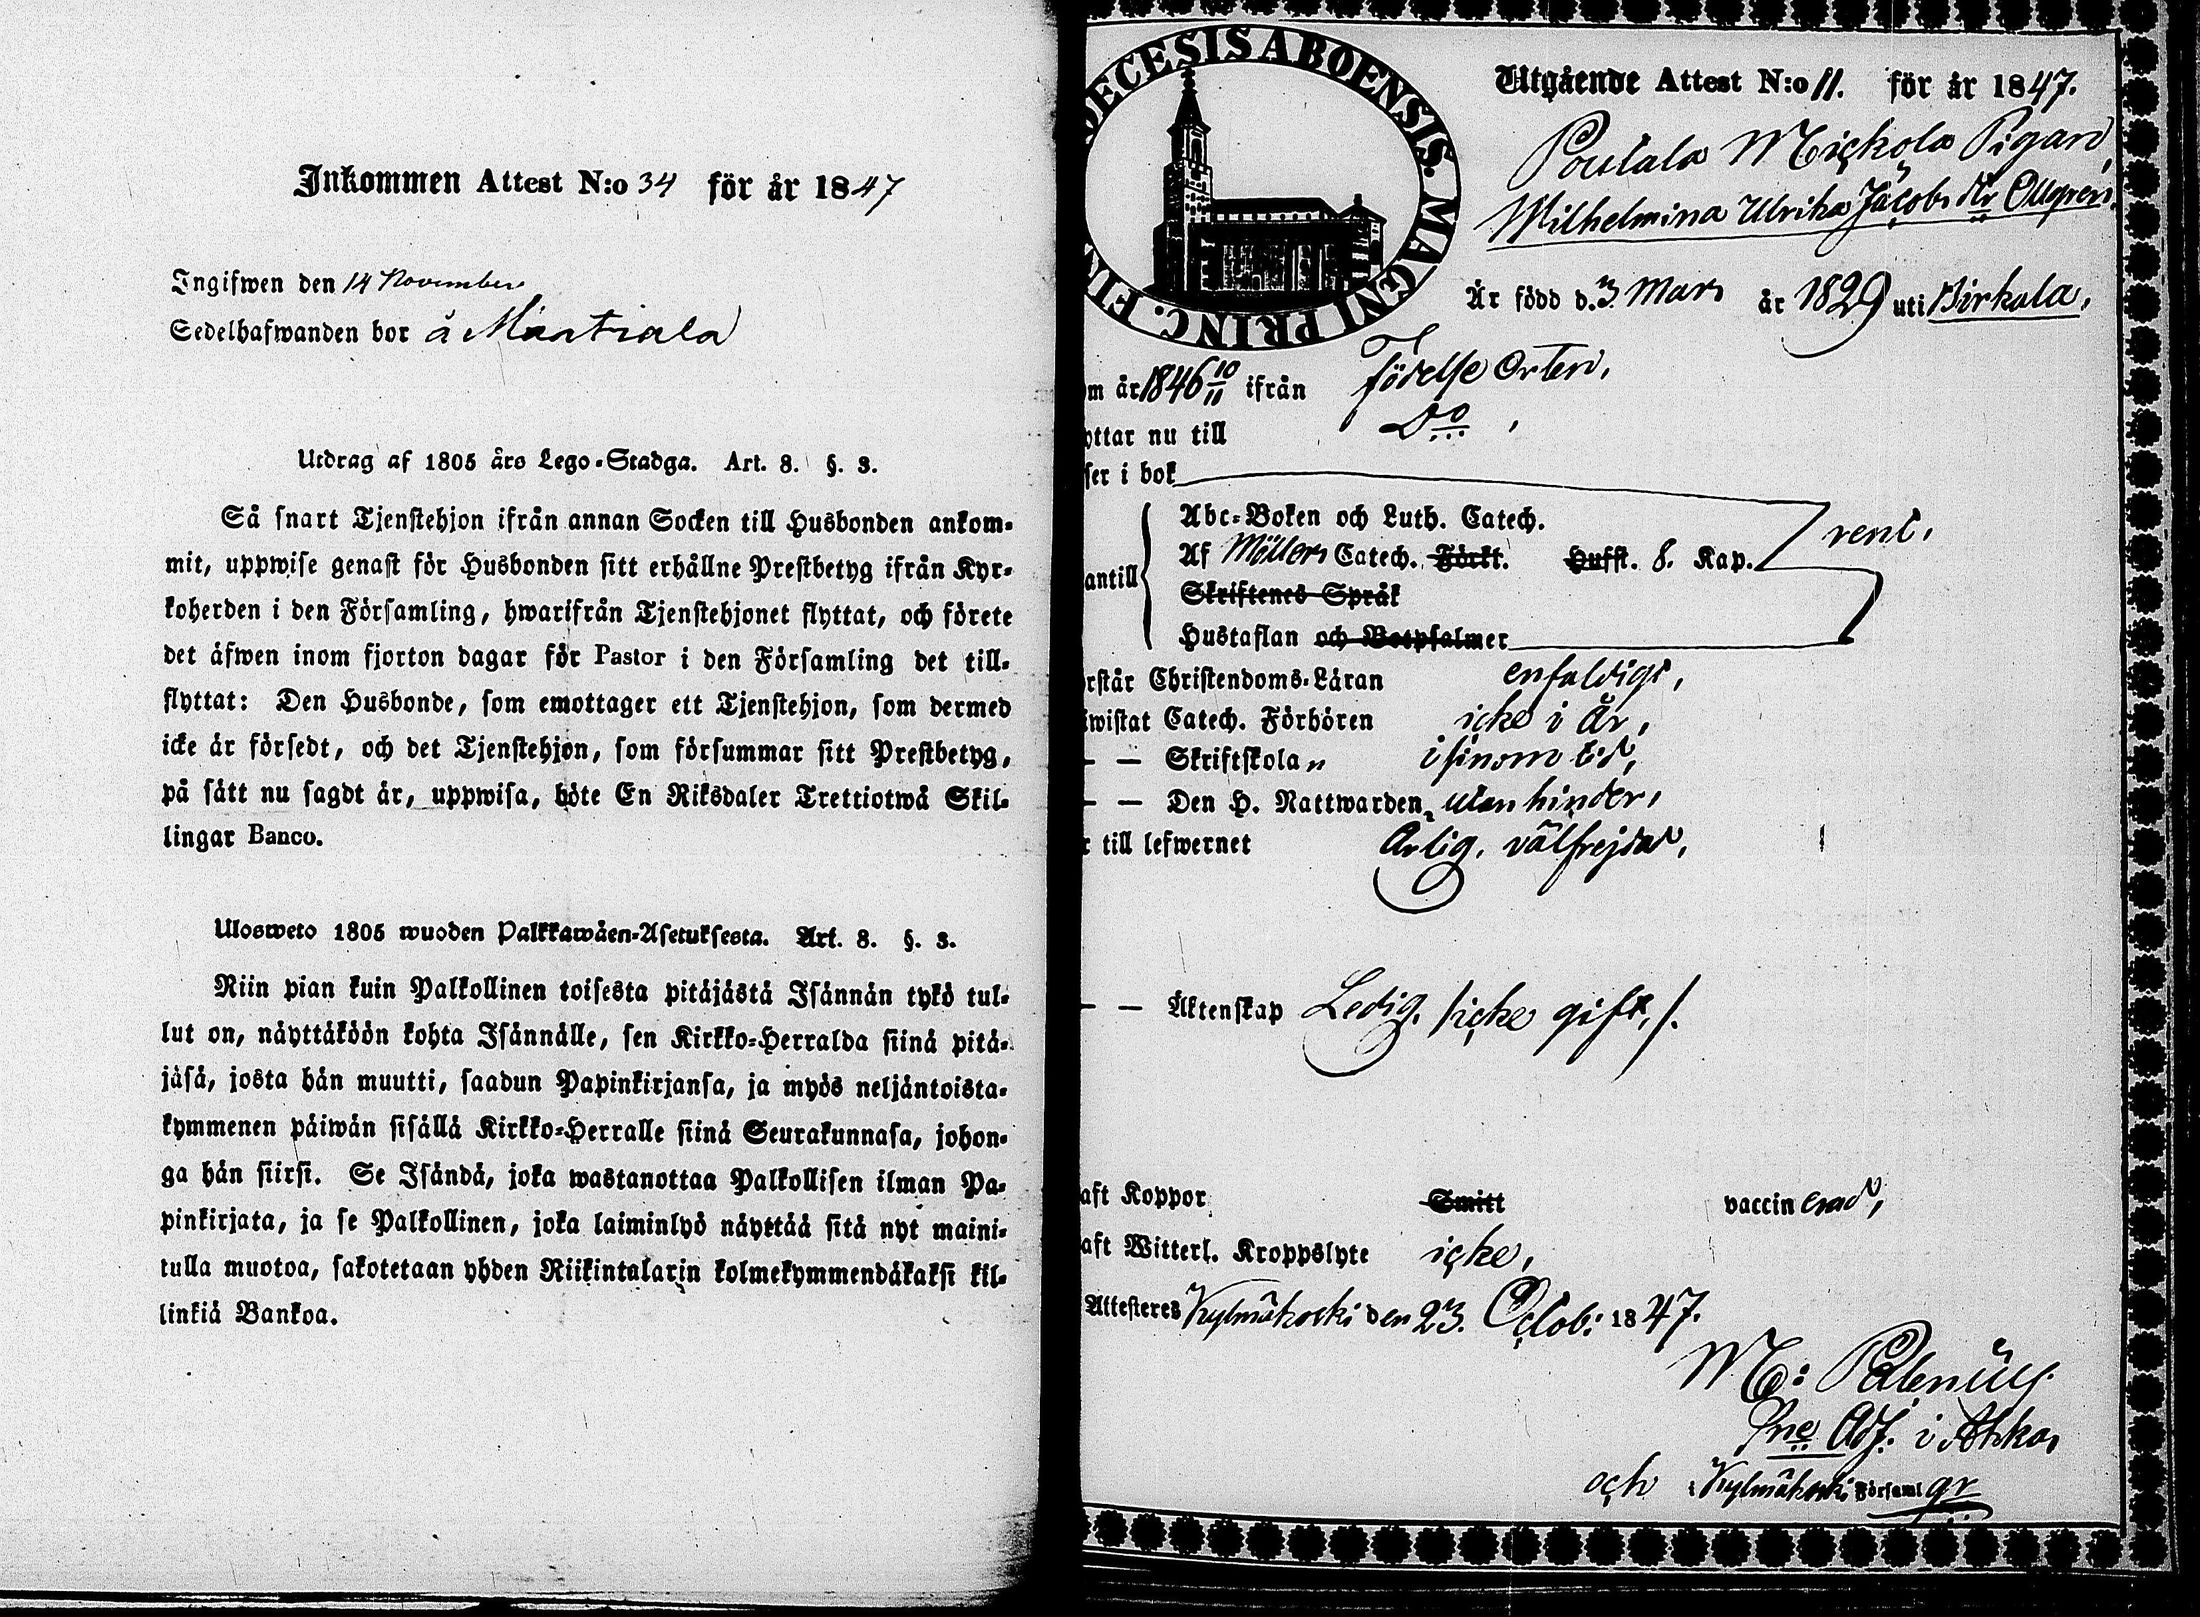 Inkommen Attest N:o 34 för år 1847
Ingifwen den 14 November
Sedelhafwanden bor å Maatiala
Utdrag af 1805 års Lego-Stadga. Art. 8. §. 3.
Så snart Tjenstehjon ifrån annan Socken till Husbonden ankom-
mit, uppwise genast för Husbonden sitt erhållne Prestbetyg ifrån Kyr-
koherden i den Församling, hwarifrån Tjenstehjonet flyttat, och förete
det äfwen inom fjorton dagar för Pastor i den Församling det till-
flyttat: Den Husbonde, som emottager ett Tjenstehjon, som dermed
icke är försedt, och det Tjenstehjon, som försummar sitt Prestbetyg,
på sätt nu sagdt är, uppwisa, böte En Riksdaler Trettiotwå Skil-
lingar Banco.
Ulosweto 1805 wuoden Palkkawäen-Asetuksesta. Art. 8. §. 3.
Niin pian kuin Palkollinen toisesta pitäjästä Isännän tykö tul-
lut on, näyttäköön kohta Isännälle, sen Kirkko-Herralda siinä pitä-
jäsä, josta hän muutti, saadun Papinkirjansa, ja myös neljäntoista-
kymmenen päiwän sisällä Kirkko-Herralle siinä Seurakunnasa, johon-
ga hän siirsi. Se Isändä, joka wastanottaa Palkollisen ilman Pa-
pinkirjata, ja se Palkollinen, joka laiminlyö näyttää sitä nyt maini-
tulla muotoa, sakotetaan yhden Riikintalarin kolmekymmendäkaksi kil-
linkiä Bankoa.
ECESIS ABOENSIS. MAGNI PRINC. FIN
Utgående Attest N:o 11. för år 1847.
Poutala Mickola Pigan
Wilhelmina Ulrika Jacobs dr Ollgren.
Är född d. 3 Mars år 1829 uti Birkala,
m år 1846 10/11 ifrån Födelse Orten,
yttar nu till Do,
ser i bok
Abc-Boken och Luth. Catech.
Af Möllers Catech. Förkl. Hufst. 8. Kap. rent,
antill
Skriftenes Språk
Hustaflan och Botpsalmer
rstår Christendoms-Läran enfaldigt,
iwistat Catech. Förhören icke i år,
— — Skriftskola„ i sinom tid,
— — Den H. Nattwarden utan hinder,
r till lefwernet Ärlig, välfrejdad,
— — Äktenskap Ledig, /icke gift,/.
aft Koppor Smitt vaccinerad,
aft Witterl. Kroppslyte icke,
Attesteres Kylmäkoski den 23. Octob: 1847.
M: Palenius
Sne Adj. i Akka,
och i Kylmäkoski Församl gr